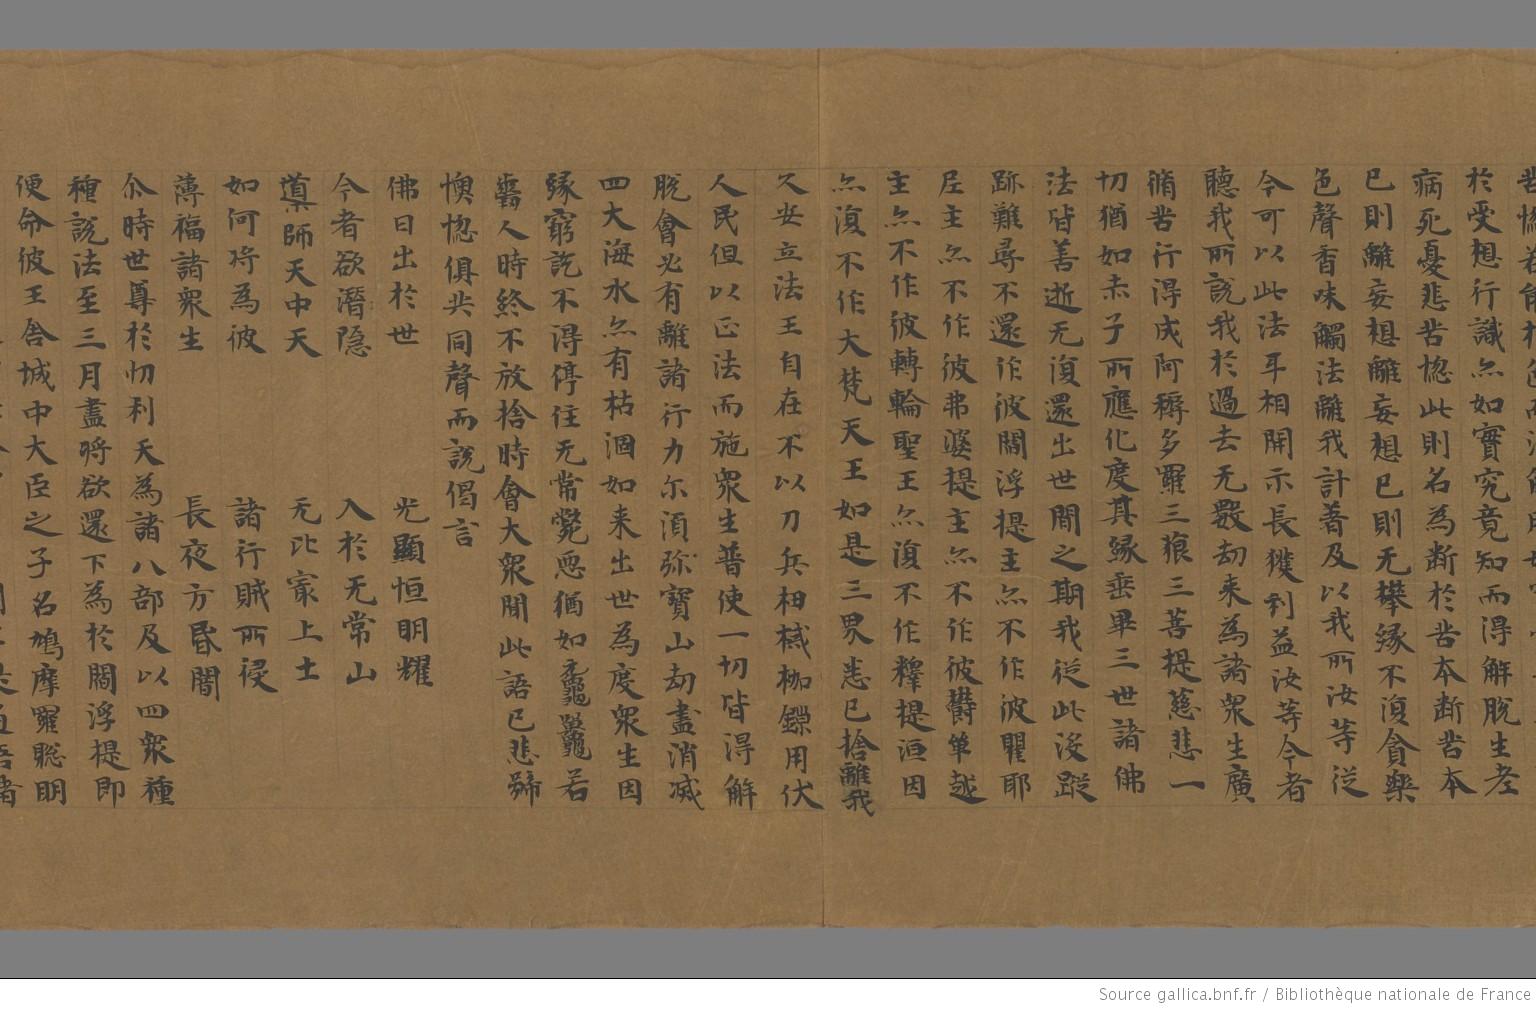 於受想行識亦如實究竟知而得解脫生老
病死憂悲苦惚此則名為斷於苦本斷苦本
已則離妄想離妄想已則无攀緣不復貪樂
色聲香味觸法離我計著及以我所汝等從
今可以此法耳相開示長獲利益汝等今者
聽我所說我於過去无數劫来為諸衆生廣
脩苦行得成阿耨多羅三藐三菩提慈悲一
切猶如赤子所應化度其緣垂畢三世諸佛
法皆善逝无復還出世間之期我從此没蹤
跡難尋不還作彼閻浮提主亦不作彼瞿耶
尼主亦不作彼弗婆提主亦不作彼欝單越
主亦不作彼轉輪聖王亦復不作釋提洹因
亦復不作大梵天王如是三界悉已捨離我
久安立法王自在不以刀兵相棫枷鏁用伏
人民但以正法而施衆生普使一切皆得解
脫會必有離諸行力尒湏弥寶山劫盡消减
四大海水亦有枯涸如来出世為度衆生因
緣窮訖不得停住无常獘惡猶如黿鼉若
齧人時終不放捨時會大衆聞此語已悲號
懊惚俱共同聲而說偈言
佛日出於世 光顯恒明耀
今者欲潛隐 入於无常山
導師天中天 无比最上士
如何将為彼 諸行賊所侵
薄福諸衆生 長夜方昏闇
尒時世尊於忉利天為諸八部及以四衆種
種說法至三月盡将欲還下為於閻浮提即
便命彼王舍城中大臣之子名鳩摩羅聡明